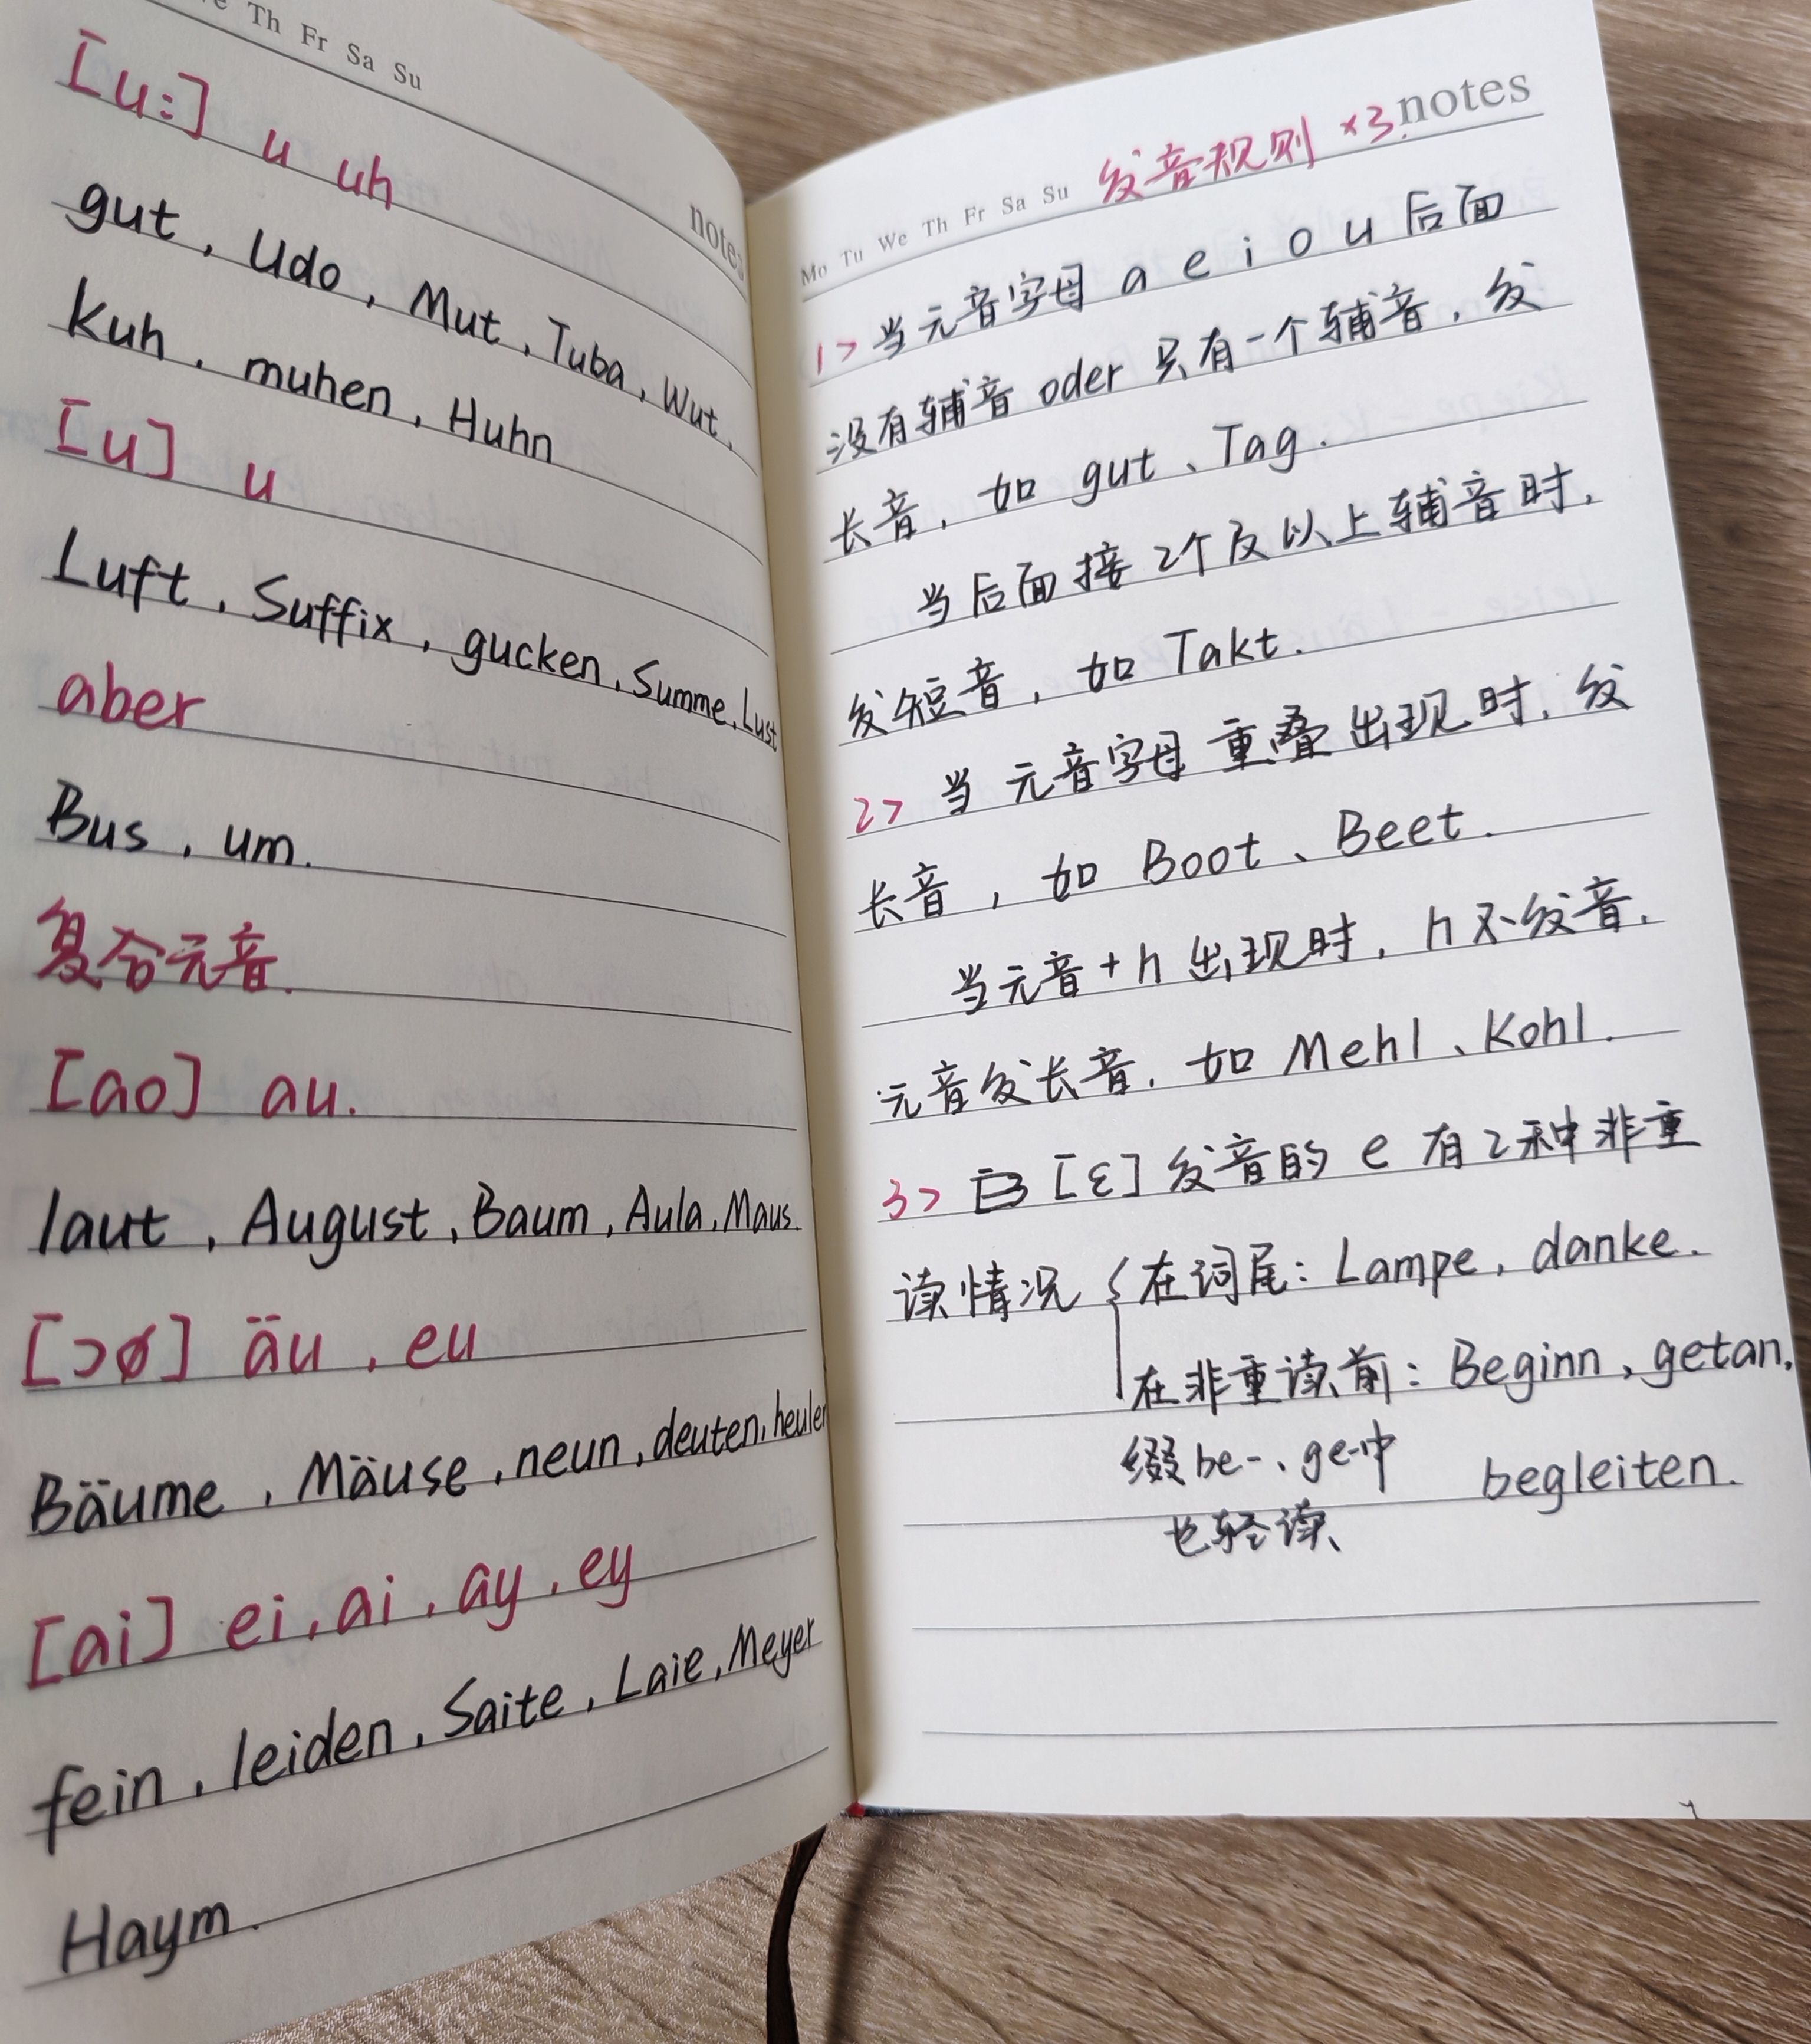 Th Fr Sa Su
notes
[u:] u uh
gut, Udo, Mut, Tuba, Wut,
Kuh, muhen, Huhn
[u] u
Luft, Suffix, gucken, Summe, Lust
aber
Bus, um.
复合元音.
[ao] au.
laut, August, Baum, Aula, Maus.
[ɔø] äu, eu
Bäume, Mäuse, neun, deuten, heulen
[ai] ei, ai, ay, ey
fein, leiden, Saite, Laie, Meyer
Haym.
notes
Mo Tu We Th Fr Sa Su 发音规则 ×3.
1> 当元音字母 a e i o u 后面
没有辅音 oder 只有一个辅音, 发
长音, 如 gut、Tag.
当后面接 2个及以上辅音时,
发短音, 如 Takt.
2> 当元音字母重叠出现时, 发
长音, 如 Boot、Beet.
当元音+h 出现时, h不发音,
元音发长音, 如 Mehl、Kohl.
3> [ɛ] 发音的 e 有2种非重
读情况 { 在词尾: Lampe, danke.
在非重读前: Beginn, getan,
缀 be-、ge-中 begleiten.
也轻读